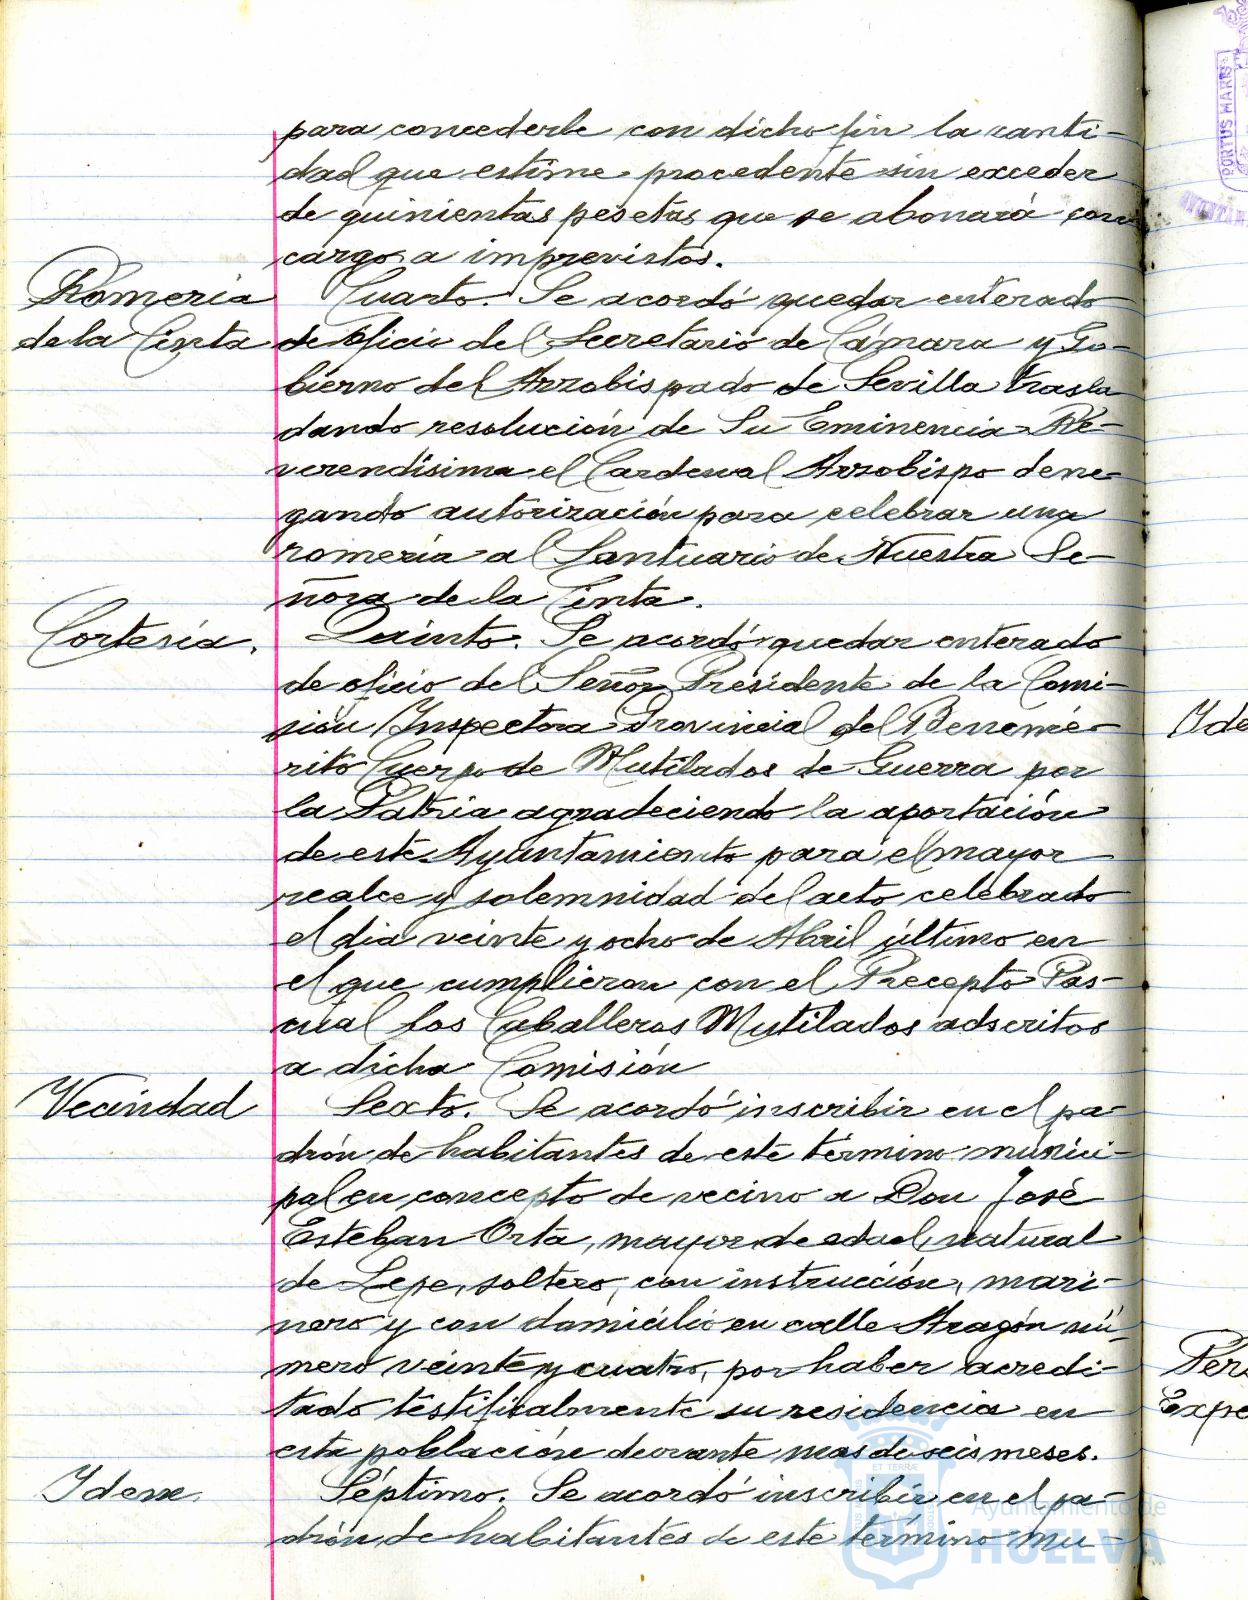 para concederle con dicho fin la canti-
dad que estime procedente sin exceder
de quinientas pesetas que se abonará con
cargo a imprevistos.
Romeria
de la Cinta
Cuarto. Se acordó quedar enterado
de oficio del Secretario de Cámara y Go-
bierno del Arzobispado de Sevilla trasla
dando resolución de Su Eminencia Re-
verendísima el Cardenal Arzobispo dene-
gando autorización para celebrar una
romería al Santuario de Nuestra Se-
ñora de la Cinta.
Cortesía.
Quinto. Se acordó quedar enterado
de oficio del Señor Presidente de la Comi-
sión Inspectora Provincial del Benemé-
rito Cuerpo de Mutilados de Guerra por
la Patria agradeciendo la aportación
de este Ayuntamiento para el mayor
realce y solemnidad del acto celebrado
el dia veinte y ocho de Abril último en
el que cumplieron con el Precepto Pas-
cual los Caballeros Mutilados adscritos
a dicha Comisión
Vecindad
Sexto. Se acordó inscribir en el pa-
drón de habitantes de este término munici-
pal en concepto de vecino a Don José
Esteban Orta, mayor de edad, natural
de Lepe, soltero, con instrucción, mari-
nero y con domicilio en calle Aragón nú-
mero veinte y cuatro, por haber acredi-
tado testificalmente su residencia en
esta población durante mas de seis meses.
Idem.
Séptimo. Se acordó inscribir en el pa-
drón de habitantes de este término mu-
PORTUS MARIS
Ide
Pers
Expe
Ayuntamiento de
HUELVA